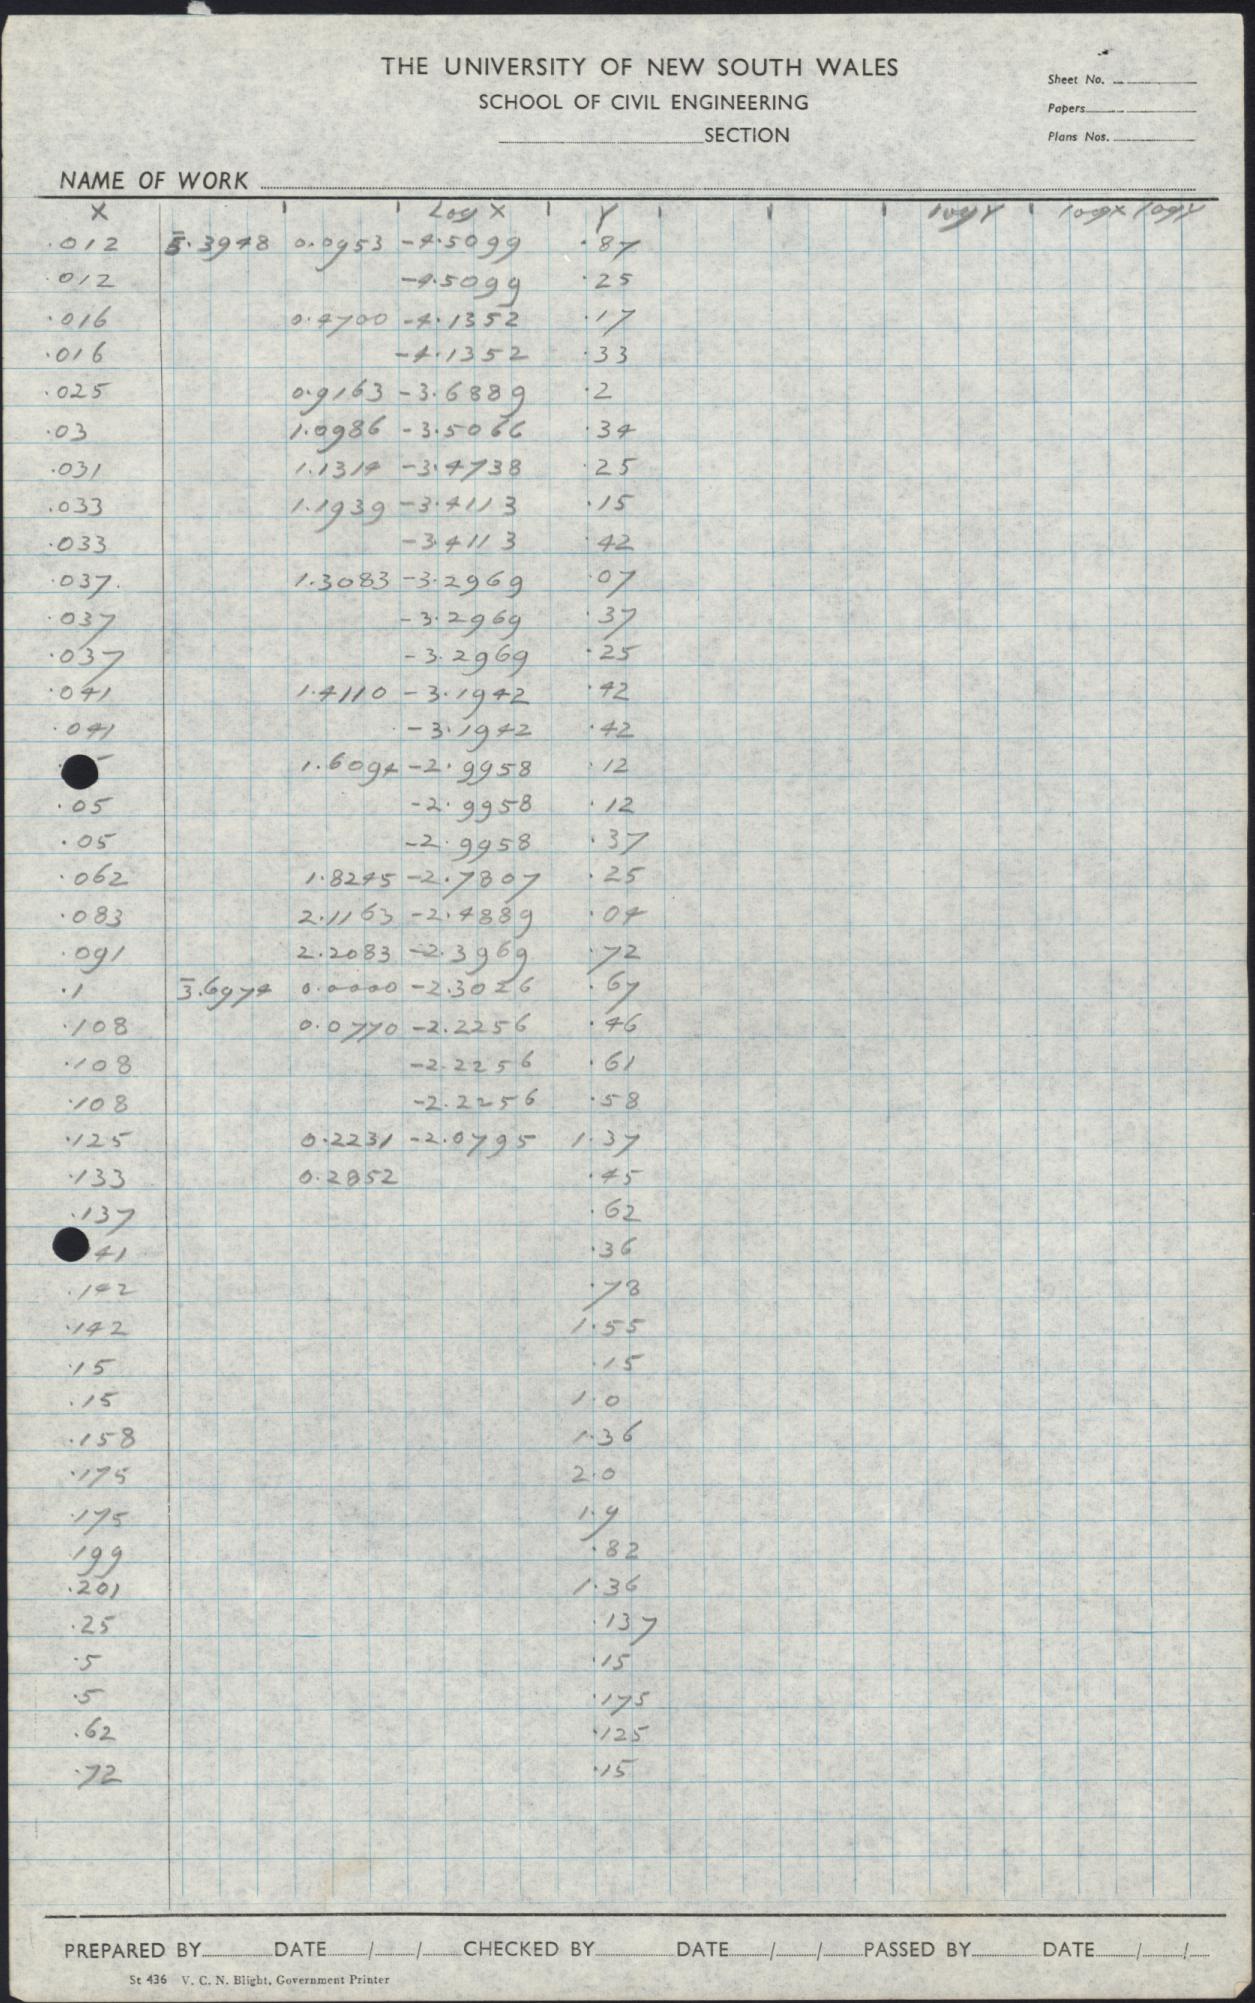 THE UNIVERSITY OF NEW SOUTH WALES
SCHOOL OF CIVIL ENGINEERING
SECTION
Sheet No.
Papers
Plans Nos.
NAME OF WORK
X Log X Y log Y log x log y
.012 5̅.3948 0.0953 -4.5099 .87
.012 -4.5099 .25
.016 0.4700 -4.1352 .17
.016 -4.1352 .33
.025 0.9163 -3.6889 .2
.03 1.0986 -3.5066 .34
.031 1.1314 -3.4738 .25
.033 1.1939 -3.4113 .15
.033 -3.4113 .42
.037. 1.3083 -3.2969 .07
.037 -3.2969 .37
.037 -3.2969 .25
.041 1.4110 -3.1942 .42
.041 -3.1942 .42
1.6094 -2.9958 .12
.05 -2.9958 .12
.05 -2.9958 .37
.062 1.8245 -2.7807 .25
.083 2.1163 -2.4889 .04
.091 2.2083 -2.3969 .72
.1 3̅.6974 0.0000 -2.3026 .67
.108 0.0770 -2.2256 .46
.108 -2.2256 .61
.108 -2.2256 .58
.125 0.2231 -2.0795 1.37
.133 0.2852 .45
.137 .62
41 .36
.142 .78
.142 1.55
.15 .15
.15 1.0
.158 1.36
.175 2.0
.175 1.9
.199 .82
.201 1.36
.25 .137
.5 .15
.5 .175
.62 .125
.72 .15
PREPARED BY DATE / / CHECKED BY DATE / / PASSED BY DATE / /
St 436 V. C. N. Blight, Government Printer